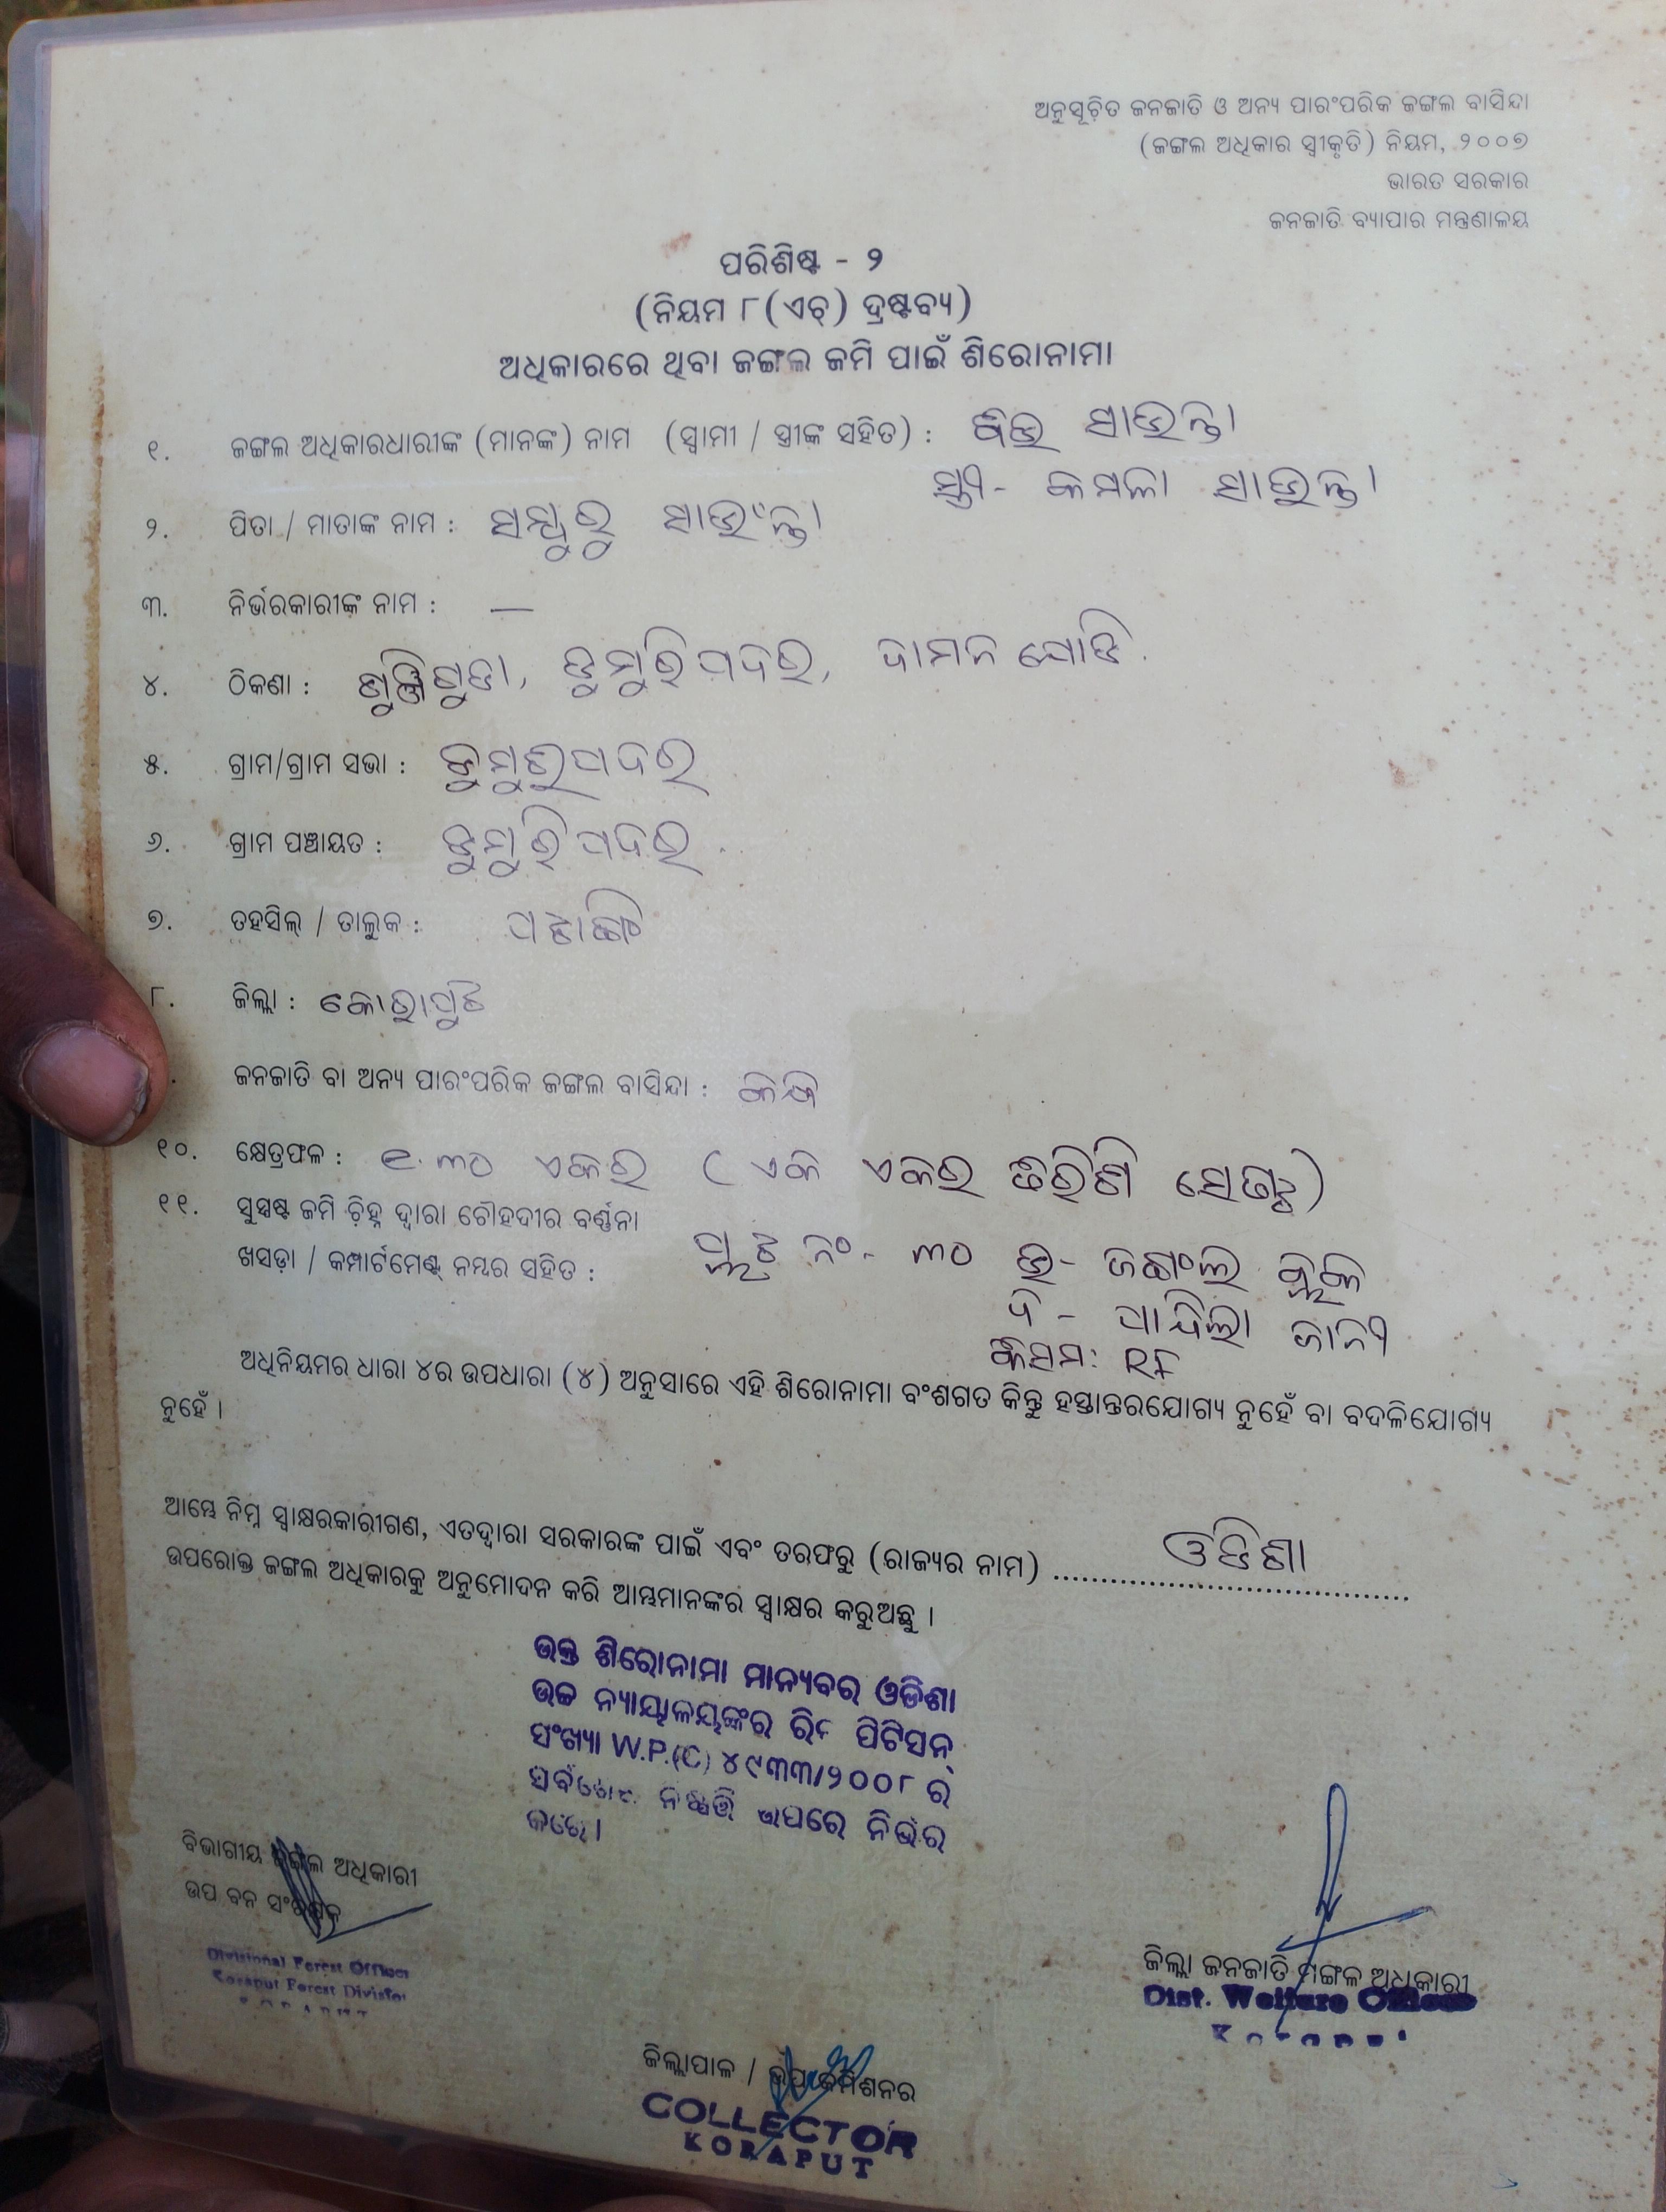 ଅନୁସୂଚିତ ଜନଜାତି ଓ ଅନ୍ୟ ପାରଂପରିକ ଜଙ୍ଗଲ ବାସିନ୍ଦା
(ଜଙ୍ଗଲ ଅଧିକାର ସ୍ୱୀକୃତି) ନିୟମ, ୨୦୦୭
ଭାରତ ସରକାର
ଜନଜାତି ବ୍ୟାପାର ମନ୍ତ୍ରଣାଳୟ
ପରିଶିଷ୍ଟ - ୨
(ନିୟମ ୮(ଏଚ୍) ଦ୍ରଷ୍ଟବ୍ୟ)
ଅଧିକାରରେ ଥିବା ଜଙ୍ଗଲ ଜମି ପାଇଁ ଶିରୋନାମା
୧. ଜଙ୍ଗଲ ଅଧିକାରଧାରୀଙ୍କ (ମାନଙ୍କ) ନାମ (ସ୍ୱାମୀ / ସ୍ତ୍ରୀଙ୍କ ସହିତ) : ସାଉନ୍ତା
ସ୍ତ୍ରୀ - କମଳା ସାଉନ୍ତା
୨. ପିତା / ମାତାଙ୍କ ନାମ : ସାଉଁନ୍ତା
୩. ନିର୍ଭରକାରୀଙ୍କ ନାମ : —
୪. ଠିକଣା : ଡୁମୁରିପଦର, ଦାମନଯୋଡି.
୫. ଗ୍ରାମ/ଗ୍ରାମ ସଭା : ଡୁମୁରିପଦର
୬. ଗ୍ରାମ ପଞ୍ଚାୟତ : ଡୁମୁରିପଦର
୭. ତହସିଲ୍ / ତାଲୁକ :
୮. ଜିଲ୍ଲା : କୋରାପୁଟ
ଜନଜାତି ବା ଅନ୍ୟ ପାରଂପରିକ ଜଙ୍ଗଲ ବାସିନ୍ଦା :
୧୦. କ୍ଷେତ୍ରଫଳ : ୧.୩୦ ଏକର (ଏକ ଏକର ତିରିଶି ସେଣ୍ଟ)
୧୧. ସୁସ୍ପଷ୍ଟ ଜମି ଚିହ୍ନ ଦ୍ୱାରା ଚୌହଦୀର ବର୍ଣ୍ଣନା
ଖସଡ଼ା / କମ୍ପାର୍ଟମେଣ୍ଟ୍ ନମ୍ବର ସହିତ : ପ୍ଲଟ ନଂ - ୩୦ ଉ -
ଦ -
କିସମ: RF
ଅଧିନିୟମର ଧାରା ୪ର ଉପଧାରା (୪) ଅନୁସାରେ ଏହି ଶିରୋନାମା ବଂଶଗତ କିନ୍ତୁ ହସ୍ତାନ୍ତରଯୋଗ୍ୟ ନୁହେଁ ବା ବଦଳିଯୋଗ୍ୟ
ନୁହେଁ ।
ଆମ୍ଭେ ନିମ୍ନ ସ୍ୱାକ୍ଷରକାରୀଗଣ, ଏତଦ୍ଦ୍ୱାରା ସରକାରଙ୍କ ପାଇଁ ଏବଂ ତରଫରୁ (ରାଜ୍ୟର ନାମ) ଓଡିଶା
ଉପରୋକ୍ତ ଜଙ୍ଗଲ ଅଧିକାରକୁ ଅନୁମୋଦନ କରି ଆମ୍ଭମାନଙ୍କର ସ୍ୱାକ୍ଷର କରୁଅଛୁ ।
ଉକ୍ତ ଶିରୋନାମା ମାନ୍ୟବର ଓଡିଶା
ଉଚ୍ଚ ନ୍ୟାୟାଳୟଙ୍କର ରିଟ ପିଟିସନ୍
ସଂଖ୍ୟା W.P.(C) ୪୯୩୩/୨୦୦୮ ର
ନିଷ୍ପତ୍ତି ଉପରେ ନିର୍ଭର
କରେ ।
ବିଭାଗୀୟ ଜଙ୍ଗଲ ଅଧିକାରୀ
ଉପ ବନ ସଂରକ୍ଷକ
Divisional Forest Officer
Koraput Forest Division
KORAPUT
ଜିଲ୍ଲା ଜନଜାତି ମଙ୍ଗଳ ଅଧିକାରୀ
Dist. Welfare Officer
Koraput
ଜିଲ୍ଲାପାଳ / ଉପ କମିଶନର
COLLECTOR
KORAPUT